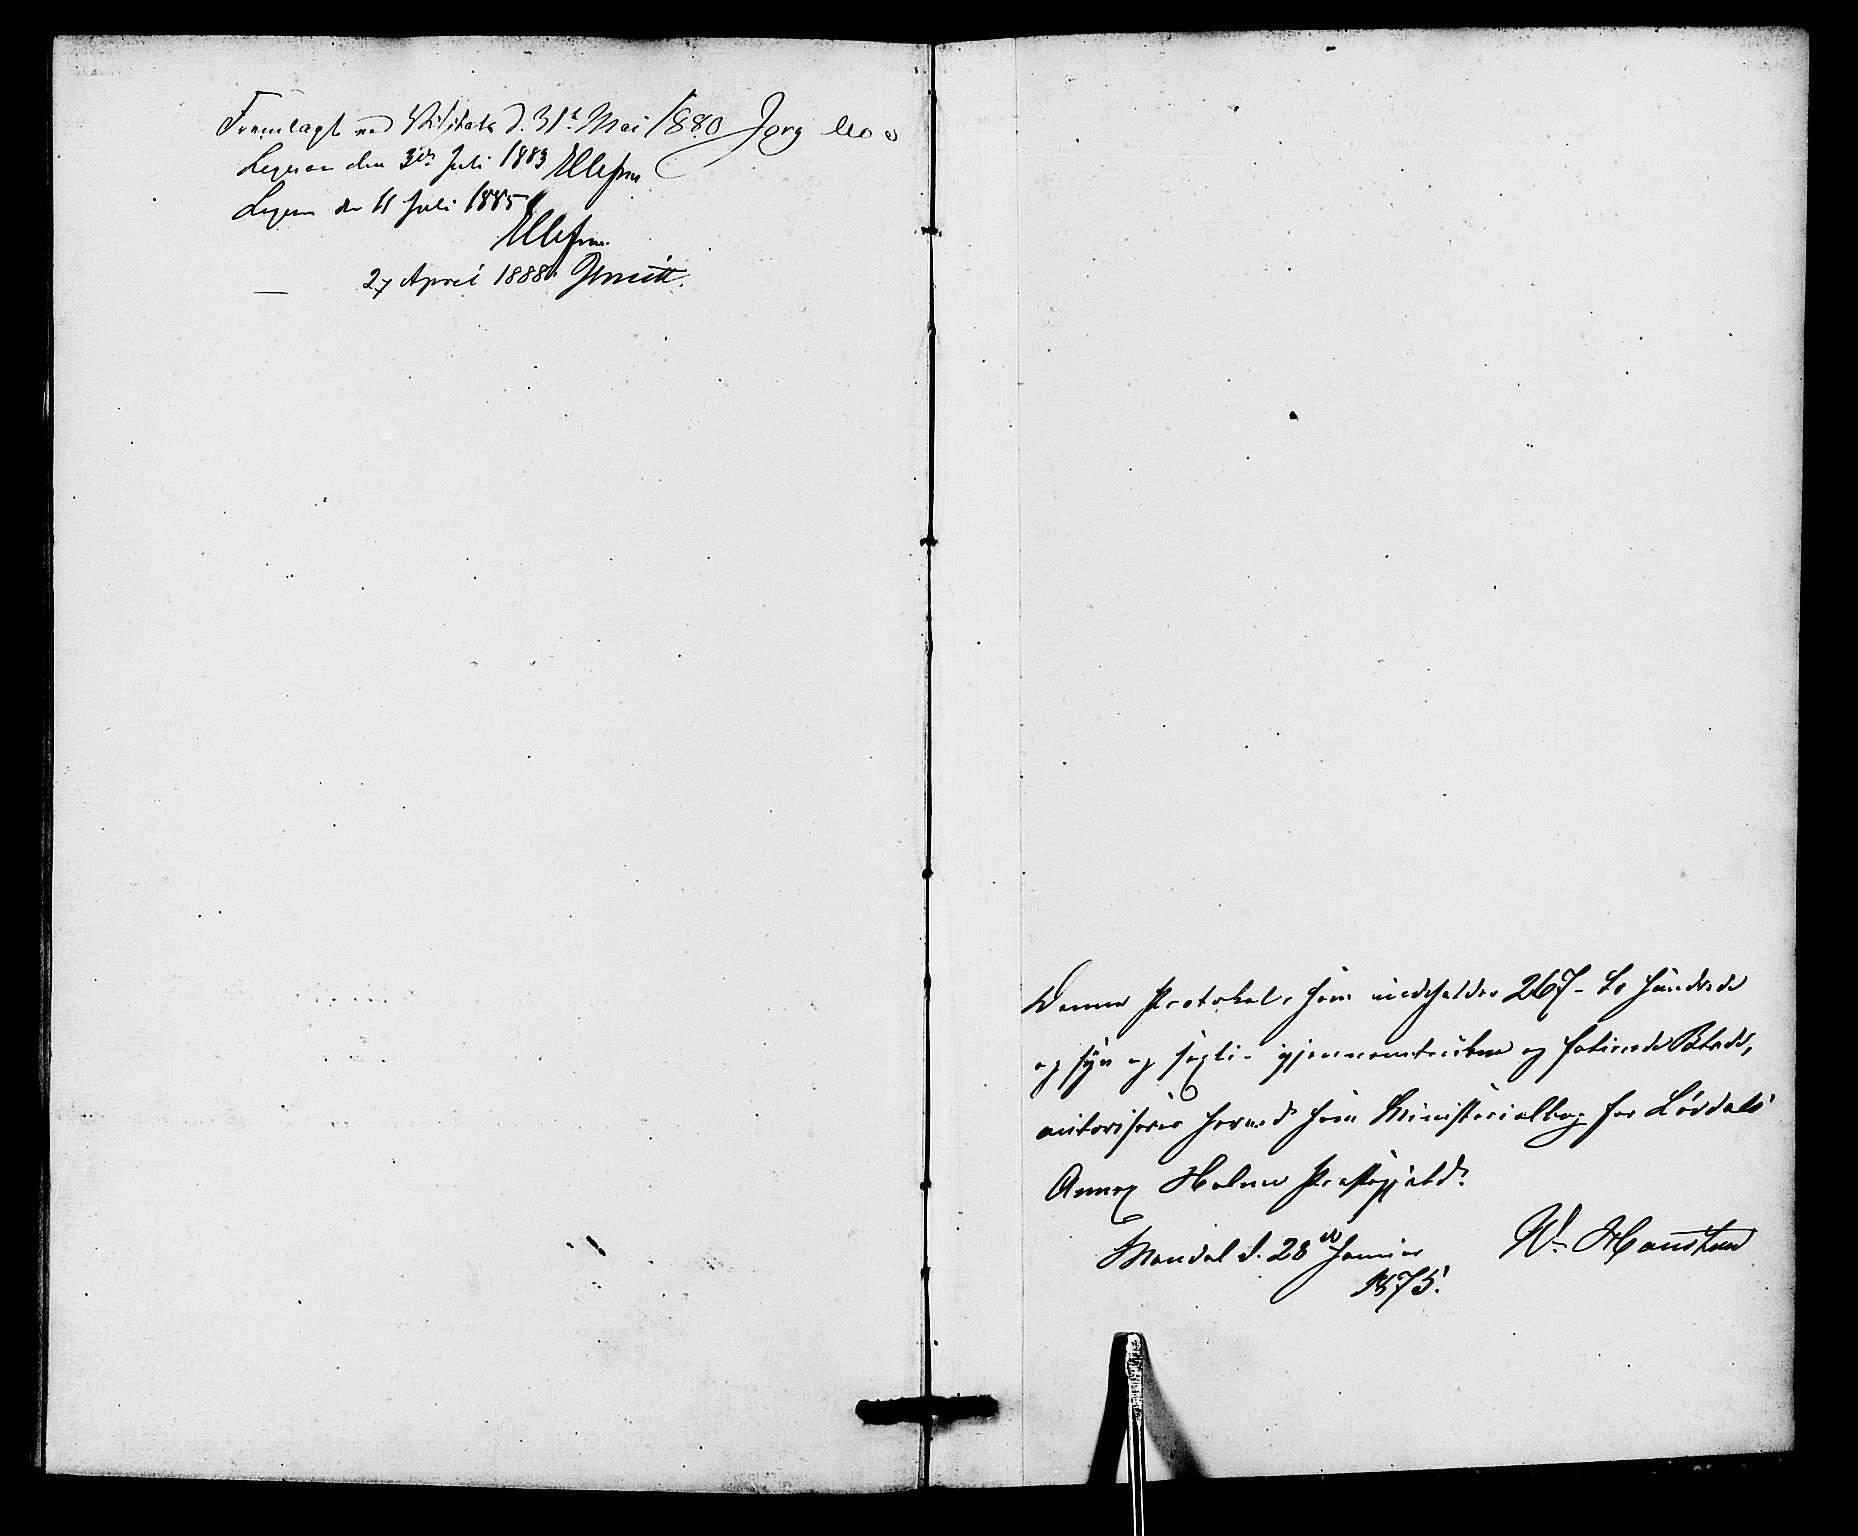 Fremlagt ved Visitats d. 31t Mai 1880 Jørg Moe
Ligesaa den 3die Juli 1883
Ligesaa den 11 Juli 1885
— 27 April 1888
Denne Protokol, som indeholder 267 - to hundrede
og syv og sexti - gjennemtrukne og folierede Blade,
autoriseres herved som Ministerialbog for Løvdals
Annex Holme Præstegjæld.
Mandal d. 28de Januar
1875.